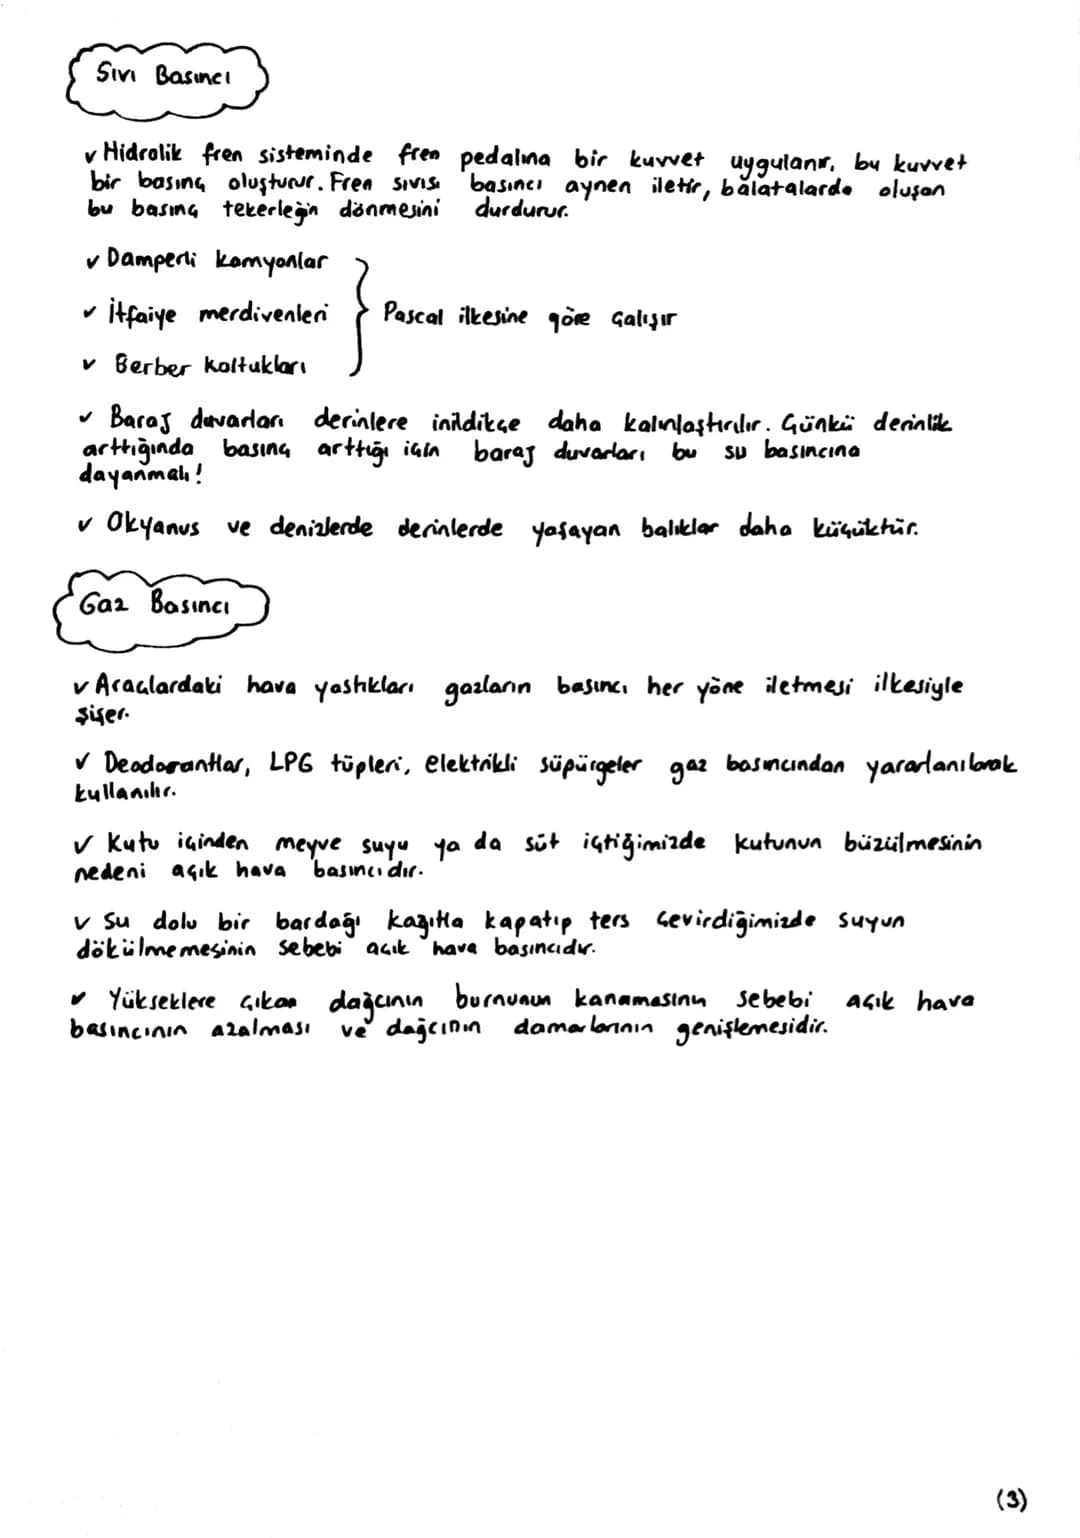 Sıvı Basıncı
✓ Hidrolik fren sisteminde fren pedalına bir kuvvet uygulanır, bu kuvvet
bir basınç oluşturur. Fren sıvısı basıncı aynen iletir, balatalarda oluşan
bu basınç tekerleğin dönmesini durdurur.
✓ Damperli kamyonlar
✓ İtfaiye merdivenleri } Pascal ilkesine göre çalışır
✓ Berber koltukları
✓ Baraj duvarları derinlere inildikçe daha kalınlaştırılır. Çünkü derinlik
arttığında basınç arttığı için baraj duvarları bu su basıncına
dayanmalı!
✓ Okyanus ve denizlerde derinlerde yaşayan balıklar daha küçüktür.
Gaz Basıncı
✓ Araçlardaki hava yastıkları gazların basıncı her yöne iletmesi ilkesiyle
şişer.
✓ Deodorantlar, LPG tüpleri, elektrikli süpürgeler gaz basıncından yararlanılarak
kullanılır.
✓ Kutu içinden meyve suyu ya da süt içtiğimizde kutunun büzülmesinin
nedeni açık hava basıncıdır.
✓ Su dolu bir bardağı kağıtla kapatıp ters çevirdiğimizde suyun
dökülmemesinin sebebi açık hava basıncıdır.
✓ Yükseklere çıkan dağcının burnunun kanamasının sebebi açık hava
basıncının azalması ve dağcının damarlarının genişlemesidir.
(3)